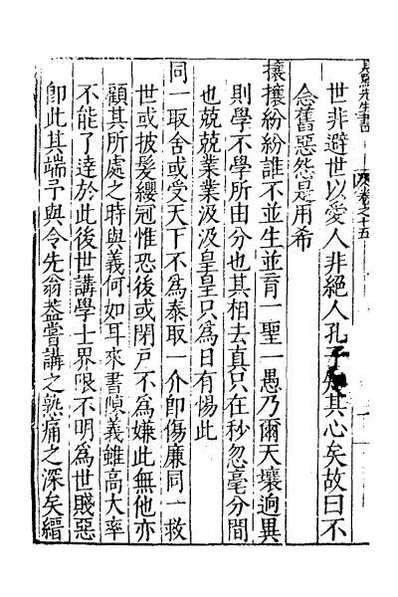 世非避世以愛人非絕人孔子其心矣故曰不
念舊惡怨是用希
攘攘紛紛誰不並生並育一聖一愚乃爾天壤逈異
則學不學所由分也其相去真只在秒忽毫分間
也兢兢業業汲汲皇皇只為日有惕此
同一取舍或受天下不為泰取一介卽傷廉同一救
世或披髮纓冠惟恐後或閉戶不為嫌此無他亦
顧其所處之時與義何如耳來書順義雖高大率
不能了達於此後世講學士界限不明為世賤惡
卽此其端予與令先翁葢嘗講之熟痛之深矣縉
先生書
卷之十五